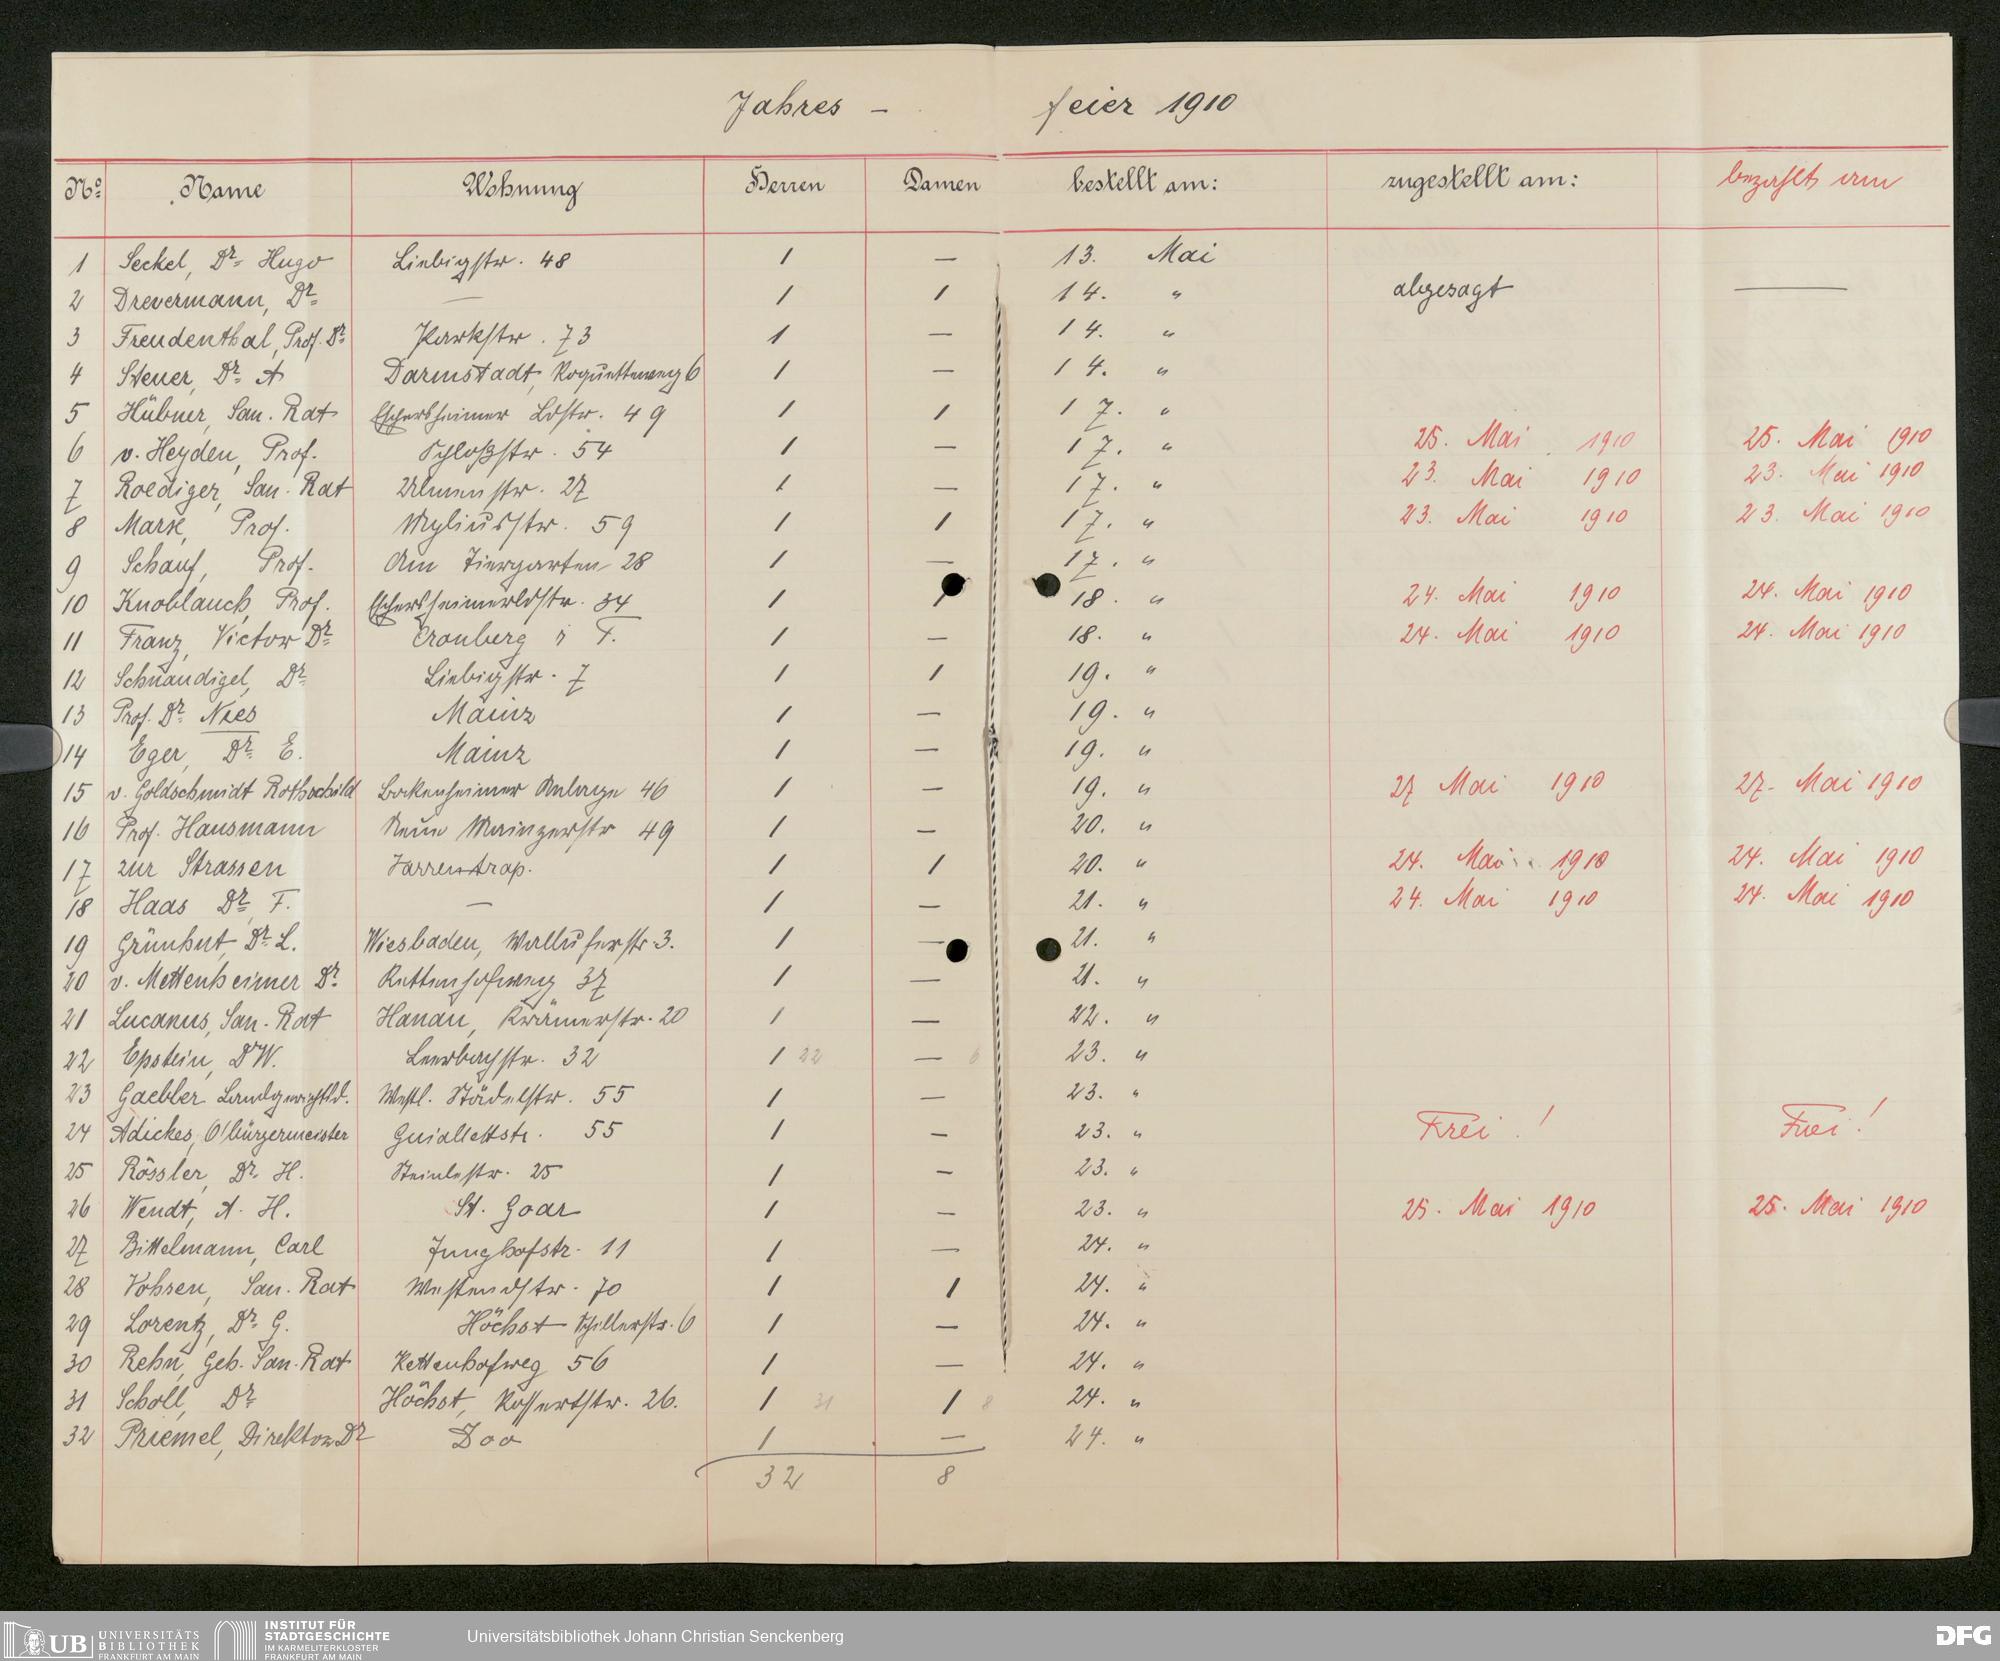 Jahres - feier 1910
No. Name Wohnung Herren Damen bestellt am: zugestellt am: bezahlt am
1 Seckel, Dr. Hugo Liebigstr. 48 1 — 13. Mai
2 Drevermann, Dr. — 1 1 14. " abgesagt —
3 Freudenthal, Prof. Dr. Parkstr. 73 1 — 14. "
4 Steuer, Dr. A Darmstadt, Roquetteweg 6 1 — 14. "
5 Hübner, San. Rat Eschersheimer Ldstr. 49 1 1 17. "
6 v. Heyden, Prof. Schloßstr. 54 1 — 17. " 25. Mai 1910 25. Mai 1910
7 Roediger, San. Rat Ulmenstr. 27 1 — 17. " 23. Mai 1910 23. Mai 1910
8 Marx, Prof. Myliusstr. 59 1 1 17. " 23. Mai 1910 23. Mai 1910
9 Schauf, Prof. Am Tiergarten 28 1 — 17. "
10 Knoblauch, Prof. Eschersheimerldstr. 34 1 1 18. " 24. Mai 1910 24. Mai 1910
11 Franz, Victor Dr. Cronberg i T. 1 — 18. " 24. Mai 1910 24. Mai 1910
12 Schnaudigel, Dr. Liebigstr. 7 1 1 19. "
13 Prof. Dr. Nies Mainz 1 — 19. "
14 Eger, Dr. E. Mainz 1 — 19. "
15 v. Goldschmidt Rothschild Bockenheimer Anlage 46 1 — 19. " 27 Mai 1910 27. Mai 1910
16 Prof. Hausmann Neue Mainzerstr 49 1 — 20. "
17 zur Strassen Varrentrap. 1 1 20. " 24. Mai 1910 24. Mai 1910
18 Haas Dr. F. — 1 — 21. " 24. Mai 1910 24. Mai 1910
19 Grünhut, Dr. L. Wiesbaden, Walluferstr. 3. 1 — 21. "
20 v. Mettenheimer Dr. Kettenhofweg 37 1 — 21. "
21 Lucanus, San. Rat Hanau, Krämerstr. 20 1 — 22. "
22 Epstein, Dr W. Leerbachstr. 32 1 22 — 6 23. "
23 Gaebler Landgerichtsd. Westl. Städelstr. 55 1 — 23. "
24 Adickes, O/bürgermeister Guiollettstr. 55 1 — 23. " Frei! Frei!
25 Rössler, Dr. H. Steinlestr. 25 1 — 23. "
26 Wendt, A. H. St. Goar 1 — 23. " 25. Mai 1910 25. Mai 1910
27 Bittelmann, Carl Junghofstr. 11 1 — 24. "
28 Vohsen, San. Rat Westendstr. 70 1 1 24. "
29 Lorentz, Dr. G. Höchst Schillerstr. 6 1 — 24. "
30 Rehn, Geh. San. Rat Kettenhofweg 56 1 — 24. "
31 Scholl, Dr. Höchst, Rossertstr. 26. 1 31 1 8 24. "
32 Priemel, Direktor Dr Zoo 1 — 24. "
32 8
UB UNIVERSITÄTS BIBLIOTHEK FRANKFURT AM MAIN
INSTITUT FÜR STADTGESCHICHTE IM KARMELITERKLOSTER FRANKFURT AM MAIN
Universitätsbibliothek Johann Christian Senckenberg
DFG